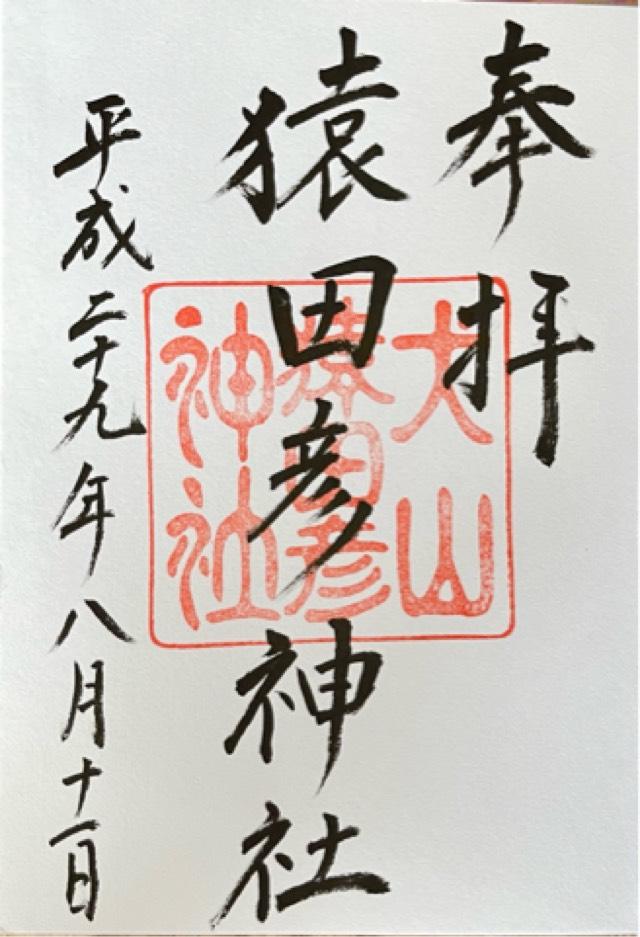 奉拝
猿田彦神社
平成二十九年八月十一日
犬山
猿田彦
神社